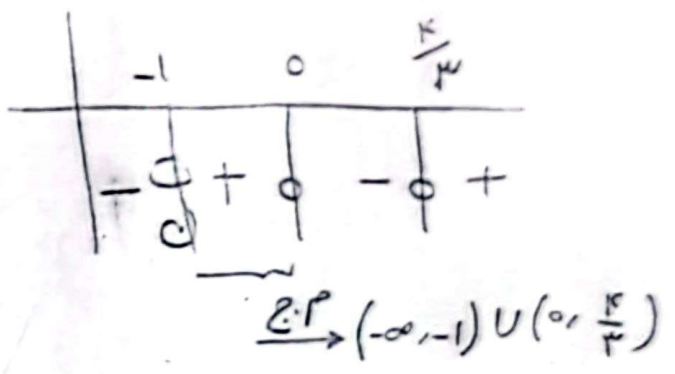 -1 0 ۴/۳
- ت + 0 - 0 +
ن
ج.م → (-∞, -1) ∪ (0, ۴/۳)